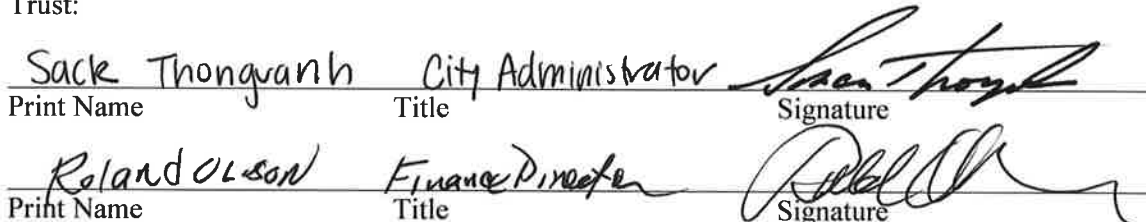 Trust:
Sack Thongvanh City Administrator
Print Name Title Signature
Roland Olson Finance Director
Print Name Title Signature